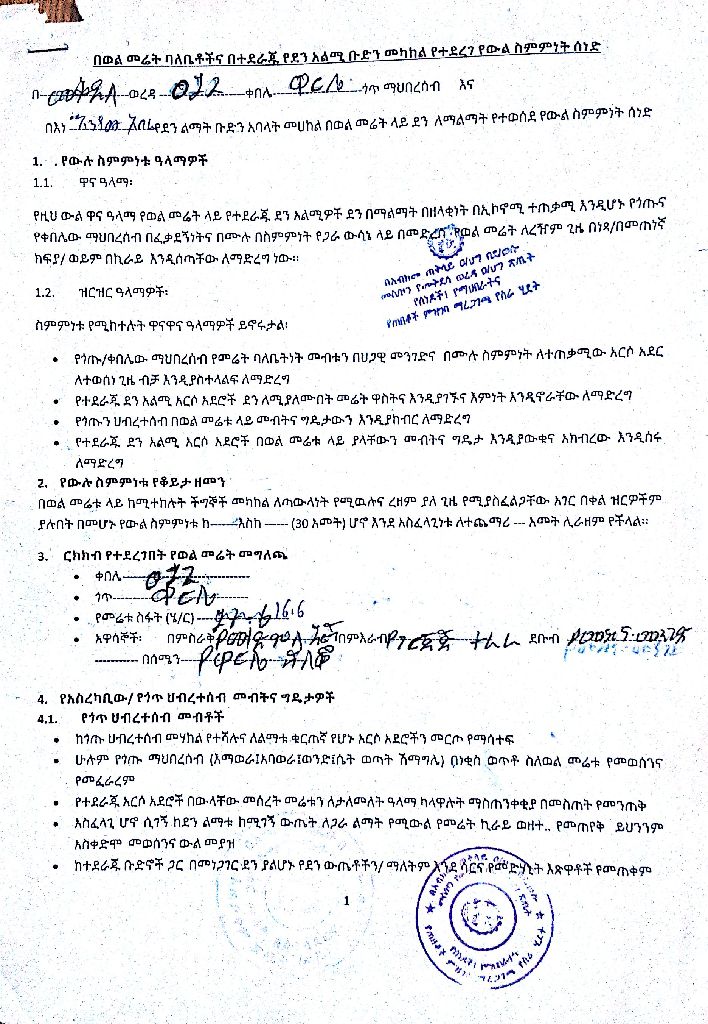 በወል መሬት ባለቤቶችና በተደራጁ የደን አልሚ ቡድን መካከል የተደረገ የውል ስምምነት ሰነድ
በ ወረዳ ቀበሌ ጎጥ ማህበረሰብ እና
በእነ የደን ልማት ቡድን አባላት መሀከል በወል መሬት ላይ ደን ለማልማት የተወሰደ የውል ስምምነት ሰነድ
1. . የውሉ ስምምነቱ ዓላማዎች
1.1. ዋና ዓላማ፡
የዚህ ውል ዋና ዓላማ የወል መሬት ላይ የተደራጁ ደን አልሚዎች ደን በማልማት በዘላቂነት በኢኮኖሚ ተጠቃሚ እንዲሆኑ የጎጡና
የቀበሌው ማህበረሰብ በፈቃደኝነትና በሙሉ በስምምነት የጋራ ውሳኔ ላይ በመድረስ የወል መሬት ለረዥም ጊዜ በነጻ/በመጠነኛ
ክፍያ/ ወይም በኪራይ እንዲሰጣቸው ለማድረግ ነው፡፡
1.2. ዝርዝር ዓላማዎች፡
ስምምነቱ የሚከተሉት ዋናዋና ዓላማዎች ይኖሩታል፡
• የጎጡ/ቀበሌው ማህበረሰብ የመሬት ባለቤትነት መብቱን በህጋዊ መንገድና በሙሉ ስምምነት ለተጠቃሚው አርሶ አደር
ለተወሰነ ጊዜ ብቻ እንዲያስተላልፍ ለማድረግ
• የተደራጁ ደን አልሚ አርሶ አደሮች ደን ለሚያለሙበት መሬት ዋስትና እንዲያገኙና እምነት እንዲኖራቸው ለማድረግ
• የጎጡን ህብረተሰብ በወል መሬቱ ላይ መብትና ግዴታውን እንዲያከብር ለማድረግ
• የተደራጁ ደን አልሚ አርሶ አደሮች በወል መሬቱ ላይ ያላቸውን መብትና ግዴታ እንዲያውቁና አክብረው እንዲሰሩ
ለማድረግ
2. የውሉ ስምምነቱ የቆይታ ዘመን
በወል መሬቱ ላይ ከሚተከሉት ችግኞች መካከል ለጣውላነት የሚዉሉና ረዘም ያለ ጊዜ የሚያስፈልጋቸው አገር በቀል ዝርዎችም
ያሉበት በመሆኑ የውል ስምምነቱ ከ-----እስከ ----- (30 አመት) ሆኖ እንደ አስፈላጊነቱ ለተጨማሪ --- አመት ሊራዘም የችላል፡፡
3. ርክክብ የተደረገበት የወል መሬት መግለጫ
• ቀበሌ
• ጎጥ
• የመሬቱ ስፋት (ሄ/ር) 16.6
• አዋሳኞች፡ በምስራቅ በምእራብ ተፈራ ደቡብ
---------- በሰሜን
4. የአስረካቢው/ የጎጥ ህብረተሰብ መብትና ግዴታዎች
4.1. የጎጥ ህብረተሰብ መብቶች
• ከጎጡ ህብረተሰብ መሃከል የተሻሉና ለልማቱ ቁርጠኛ የሆኑ አርሶ አደሮችን መርጦ የማሳተፍ
• ሁሉም የጎጡ ማህበረሰብ (እማወራ፤አባወራ፤ወንድ፤ሴት ወጣት ሽማግሌ) በነቂስ ወጥቶ ስለወል መሬቱ የመወሰንና
የመፈራረም
• የተደራጁ አርሶ አደሮች በውላቸው መሰረት መሬቱን ለታለመለት ዓላማ ካላዋሉት ማስጠንቀቂያ በመስጠት የመንጠቅ
• አስፈላጊ ሆኖ ሲገኝ ከደን ልማቱ ከሚገኝ ውጤት ለጋራ ልማት የሚውል የመሬት ኪራይ ወዘተ.. የመጠየቅ ይህንንም
አስቀድሞ መወሰንና ውል መያዝ
• ከተደራጁ ቡድኖች ጋር በመነጋገር ደን ያልሆኑ የደን ውጤቶችን/ ማለትም እንደ ሳርና የመድሃኒት እጽዋቶች የመጠቀም
1